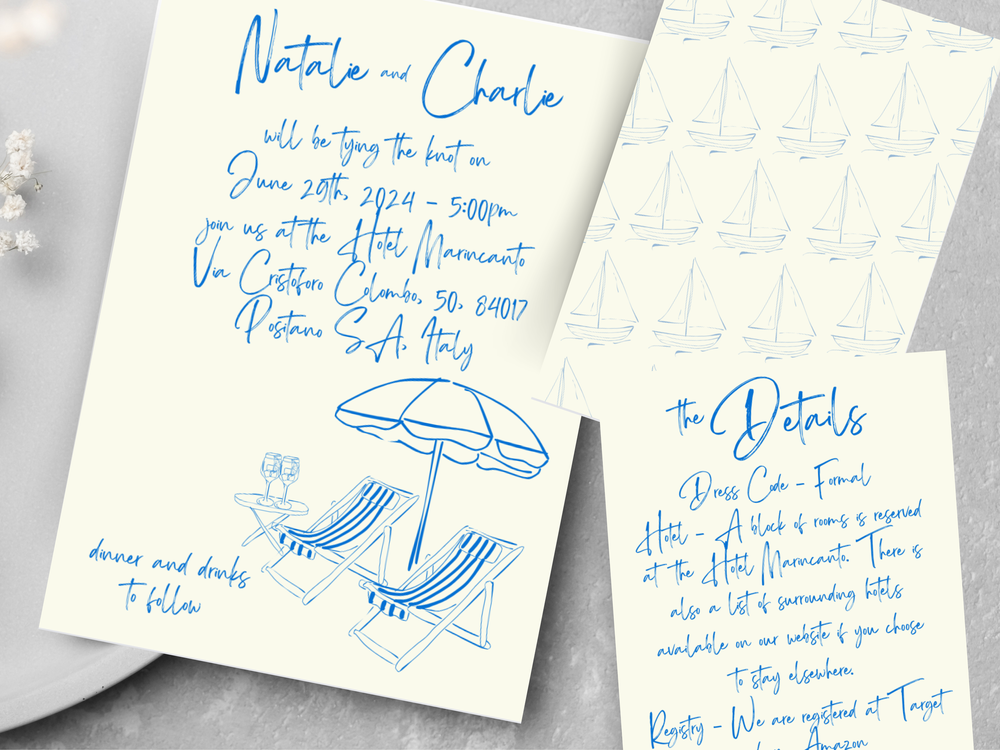 Natalie and Charlie
will be tying the knot on
June 29th, 2024 - 5:00pm
join us at the Hotel Marincanto
Via Cristoforo Colombo, 50, 84017
Positano SA, Italy
dinner and drinks
to follow
the Details
Dress Code - Formal
Hotel - A block of rooms is reserved
at the Hotel Marincanto. There is
also a list of surrounding hotels
available on our website if you choose
to stay elsewhere.
Registry - We are registered at Target
Amazon